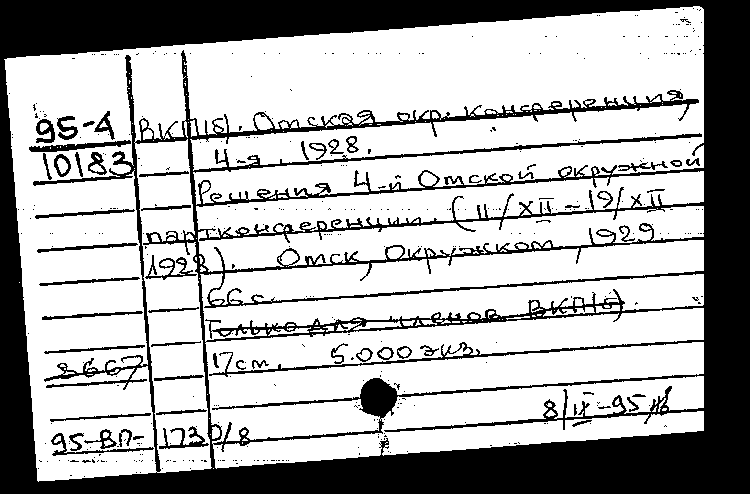 95-4 ВКП(б). Омская окр. конференция,
10183 4-я. 1928.
Решения 4-й Омской окружной
партконференции. (11/XII – 19/XII
1928). Омск, Окружком, 1929.
66 с.
Только для членов ВКП(б).
8667 17 см. 5.000 экз.
8/IX-95
95-ВП- 1730/8